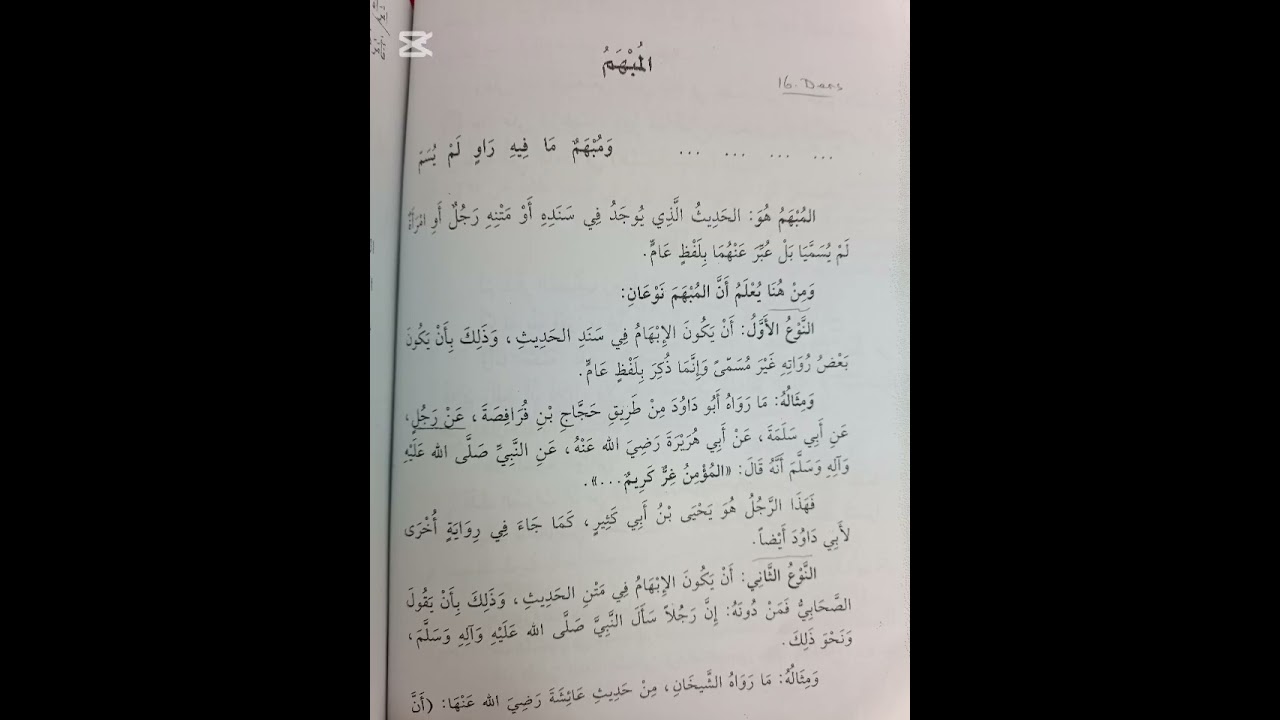 المُبْهَمُ
16. Ders
... ... ... ... وَمُبْهَمٌ مَا فِيهِ رَاوٍ لَمْ يُسَمْ
المُبْهَمُ هُوَ: الحَدِيثُ الَّذِي يُوجَدُ فِي سَنَدِهِ أَوْ مَتْنِهِ رَجُلٌ أَوِ امْرَأَةٌ
لَمْ يُسَمَّيَا بَلْ عُبِّرَ عَنْهُمَا بِلَفْظٍ عَامٍّ.
وَمِنْ هُنَا يُعْلَمُ أَنَّ المُبْهَمَ نَوْعَانِ:
النَّوْعُ الأَوَّلُ: أَنْ يَكُونَ الإِبْهَامُ فِي سَنَدِ الحَدِيثِ، وَذَلِكَ بِأَنْ يَكُونَ
بَعْضُ رُوَاتِهِ غَيْرَ مُسَمًّى وَإِنَّمَا ذُكِرَ بِلَفْظٍ عَامٍّ.
وَمِثَالُهُ: مَا رَوَاهُ أَبُو دَاوُدَ مِنْ طَرِيقِ حَجَّاجِ بْنِ فُرَافِصَةَ، عَنْ رَجُلٍ،
عَنِ أَبِي سَلَمَةَ، عَنْ أَبِي هُرَيْرَةَ رَضِيَ الله عَنْهُ، عَنِ النَّبِيِّ صَلَّى الله عَلَيْهِ
وَآلِهِ وَسَلَّمَ أَنَّهُ قَالَ: «المُؤْمِنُ غِرٌّ كَرِيمٌ...».
فَهَذَا الرَّجُلُ هُوَ يَحْيَى بْنُ أَبِي كَثِيرٍ، كَمَا جَاءَ فِي رِوَايَةٍ أُخْرَى
لأَبِي دَاوُدَ أَيْضاً.
النَّوْعُ الثَّانِي: أَنْ يَكُونَ الإِبْهَامُ فِي مَتْنِ الحَدِيثِ، وَذَلِكَ بِأَنْ يَقُولَ
الصَّحَابِيُّ فَمَنْ دُونَهُ: إِنَّ رَجُلاً سَأَلَ النَّبِيَّ صَلَّى الله عَلَيْهِ وَآلِهِ وَسَلَّمَ،
وَنَحْوَ ذَلِكَ.
وَمِثَالُهُ: مَا رَوَاهُ الشَّيْخَانِ، مِنْ حَدِيثِ عَائِشَةَ رَضِيَ الله عَنْهَا: (أَنَّ